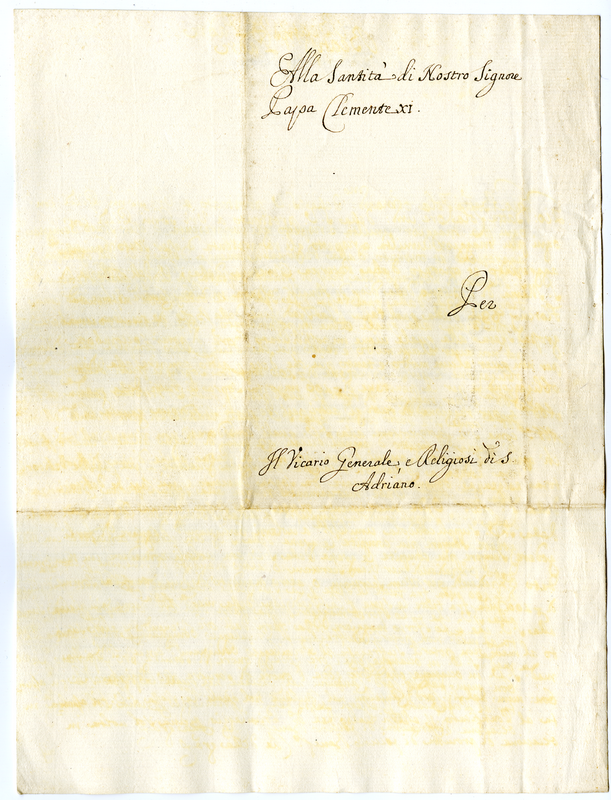 Alla Santità di Nostro Signore
Papa Clemente XI.
Per
Il Vicario Generale, e Religiosi di S.
Adriano.